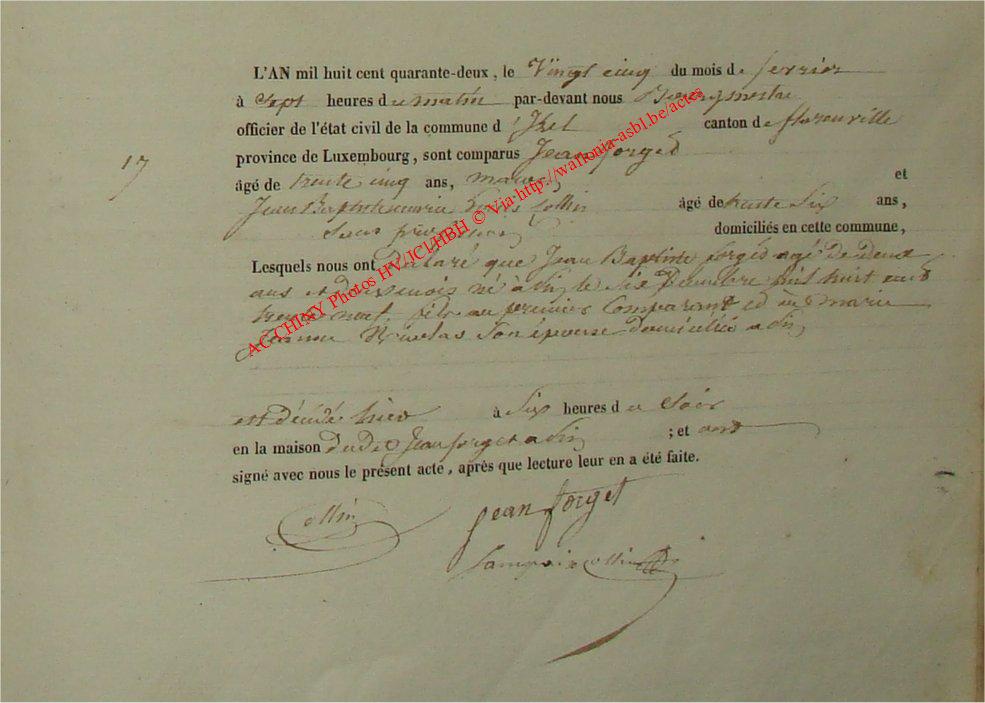 L'AN mil huit cent quarante-deux, le Vingt cinq du mois de fevrier
à Sept heures du matin par-devant nous Bourgmestre
officier de l'état civil de la commune d'Izel canton de florenville
17
province de Luxembourg, sont comparus Jean forget
âgé de trente cinq ans, et
Jean Baptiste Collin âgé de trente Six ans,
domiciliés en cette commune,
Lesquels nous ont Déclaré que Jean Baptiste forget agé de deux
ans et deux mois né a Pin le Six Decembre mil huit cent
trente neuf, fils au premier Comparant et aud marie
Jeanne Nicolas Son épouse domiciliée a Pin
est décédé hier à Six heures du Soir
en la maison dudit Jean forget a Pin ; et ont
signé avec nous le présent acte, après que lecture leur en a été faite.
Collin Jean forget
Collin
ACCHIMY Photos HV/JCl/HBH © Via-http://wallonia-asbl.be/actes